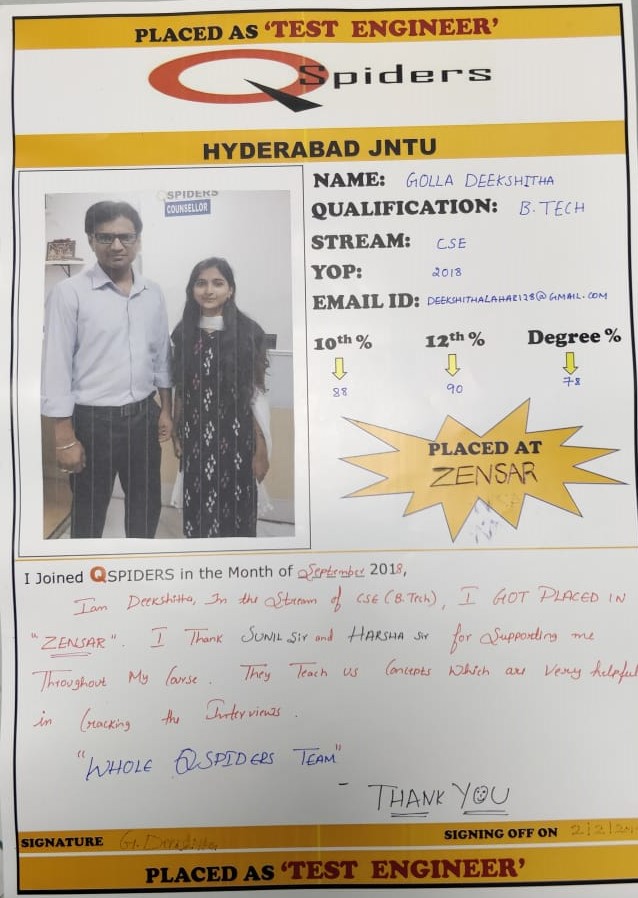 PLACED AS ‘TEST ENGINEER’
QSpiders
HYDERABAD JNTU
QSPIDERS
COUNSELLOR
NAME: GOLLA DEEKSHITHA
QUALIFICATION: B.TECH
STREAM: CSE
YOP: 2018
EMAIL ID: DEEKSHITHALAHARI28@GMAIL.COM
10th % 12th % Degree %
88 90 78
PLACED AT
ZENSAR
I Joined QSPIDERS in the Month of September 2018,
Iam Deekshitha, In the Stream of CSE (B.Tech), I GOT PLACED IN
"ZENSAR". I Thank SUNIL Sir and HARSHA Sir for Supporting me
Throughout My Course. They Teach us Concepts Which are Very helpful
in Cracking the Interviews.
"WHOLE QSPIDERS TEAM"
- THANK YOU
SIGNATURE G. Deekshitha SIGNING OFF ON 2/2/20
PLACED AS ‘TEST ENGINEER’